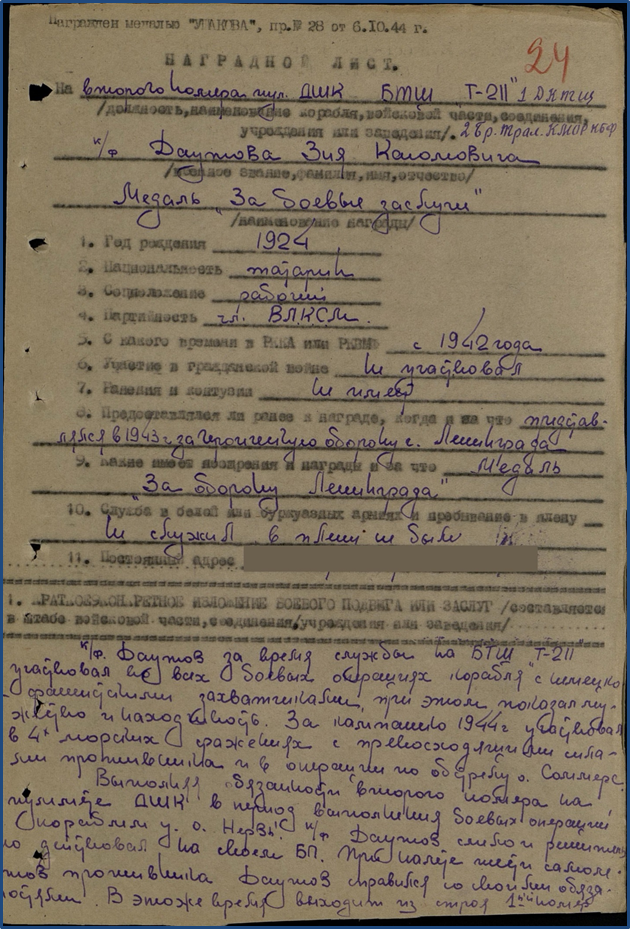 Награжден медалью "УШАКОВА", пр.№ 28 от 6.10.44 г.
24
НАГРАДНОЙ ЛИСТ.
На второго номера пул. ДШК БТЩ Т-211" 1 ДнТЩ
/должность, наименование корабля, войсковой части, соединения,
2 бр. трал. КМОР КБФ
учреждения или заведения/.
к/ф Даутова Зия Каюмовича
/военное звание, фамилия, имя, отчество/
Медаль „За боевые заслуги"
/наименование награды/
1. Год рождения 1924
2. Национальность татарин
3. Соцположение рабочий
4. Партийность чл. ВЛКСМ.
5. С какого времени в РККА или РКВМФ с 1942 года
6. Участие в гражданской войне Не участвовал
7. Ранения и контузии Не имеет
8. Представлялся ли ранее к награде, когда и за что представ-
лялся в 1943 г за героическую оборону г. Ленинграда
9. Какие имеет поощрения и награды и за что Медаль
"За оборону Ленинграда"
10. Служба в белой или буржуазных армиях и пребывание в плену
Не служил в плену не был
11. Постоянный адрес
1. КРАТКОЕ КОНКРЕТНОЕ ИЗЛОЖЕНИЕ БОЕВОГО ПОДВИГА ИЛИ ЗАСЛУГ /составляется
в штабе войсковой части, соединения, учреждения или заведения/
к/ф. Даутов за время службы на БТЩ Т-211"
участвовал во всех боевых операциях корабля с немецко
фашистскими захватчиками, при этом показал му-
жество и находчивость. За кампанию 1944 г участвовал
в 4х морских сражениях с превосходящими сила-
ми противника и в операции по обстрелу о. Соммерс.
Выполняя обязанности второго номера на
пулемёте ДШК в период выполнения боевых операций
кораблем у о. Нерва" к/ф Даутов смело и решительно
действовал на своем БП. При налёте шести самолё-
тов противника Даутов справился со своими обяза-
ностями. В этоже время выходит из строя 1ый номер